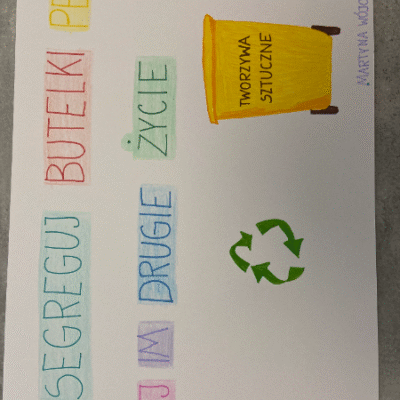 SEGREGUJ BUTELKI PE
J IM DRUGIE ŻYCIE
TWORZYWA
SZTUCZNE
MARTYNA WÓJC